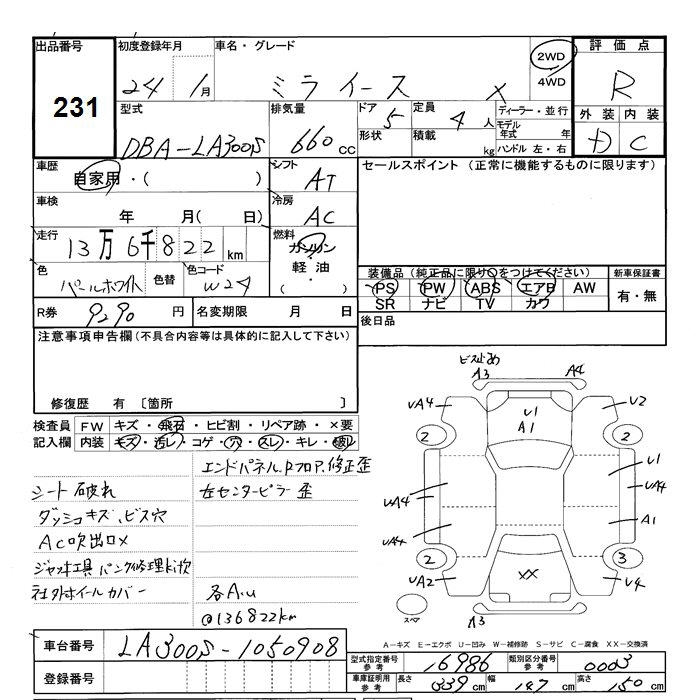 出品番号
231
初度登録年月
24 1月
車名・グレード
ミライース X
2WD
4WD
評価点
R
外装 内装
D C
型式
DBA-LA300S
排気量
660 cc
ドア 5
形状
定員 4 人
積載 kg
ディーラー・並行
モデル年式 年
ハンドル 左・右
車歴
自家用・( )
シフト AT
セールスポイント (正常に機能するものに限ります)
車検
年 月( 日)
冷房 AC
走行
13万6千822 km
燃料
ガソリン
軽油
・( )
色
パールホワイト
色替
色コード
W24
装備品(純正品に限り○をつけてください)
PS PW ABS エアB AW
SR ナビ TV カワ
新車保証書
有・無
R券 9290 円
名変期限 月 日
後日品
注意事項申告欄(不具合内容等は具体的に記入して下さい)
修復歴 有 〔箇所 〕
検査員記入欄
FW キズ・飛石・ヒビ割・リペア跡・×要
内装 キズ・汚レ・コゲ・穴・スレ・キレ・破レ
エンドパネル.Rフロア.修正歪
シート破れ
左センターピラー歪
ダッシュキズ、ビス穴
AC吹出口×
ジャッキ工具 パンク修理キット欠
社外ホイールカバー
各A.U
@136822km
ビス止め
A3 A4
UA4 U2
U1
A1
2 2
U1
UA4 UA4
A1
UA4
2 3
XX
UA2 U4
スペア
A3
A-キズ E-エクボ U-凹み W-補修跡 S-サビ C-腐食 XX-交換済
車台番号
LA300S-1050908
登録番号
型式指定番号 参考 16986
類別区分番号 参考 0003
車庫証明用 参考
長さ 339 cm
幅 147 cm
高さ 150 cm